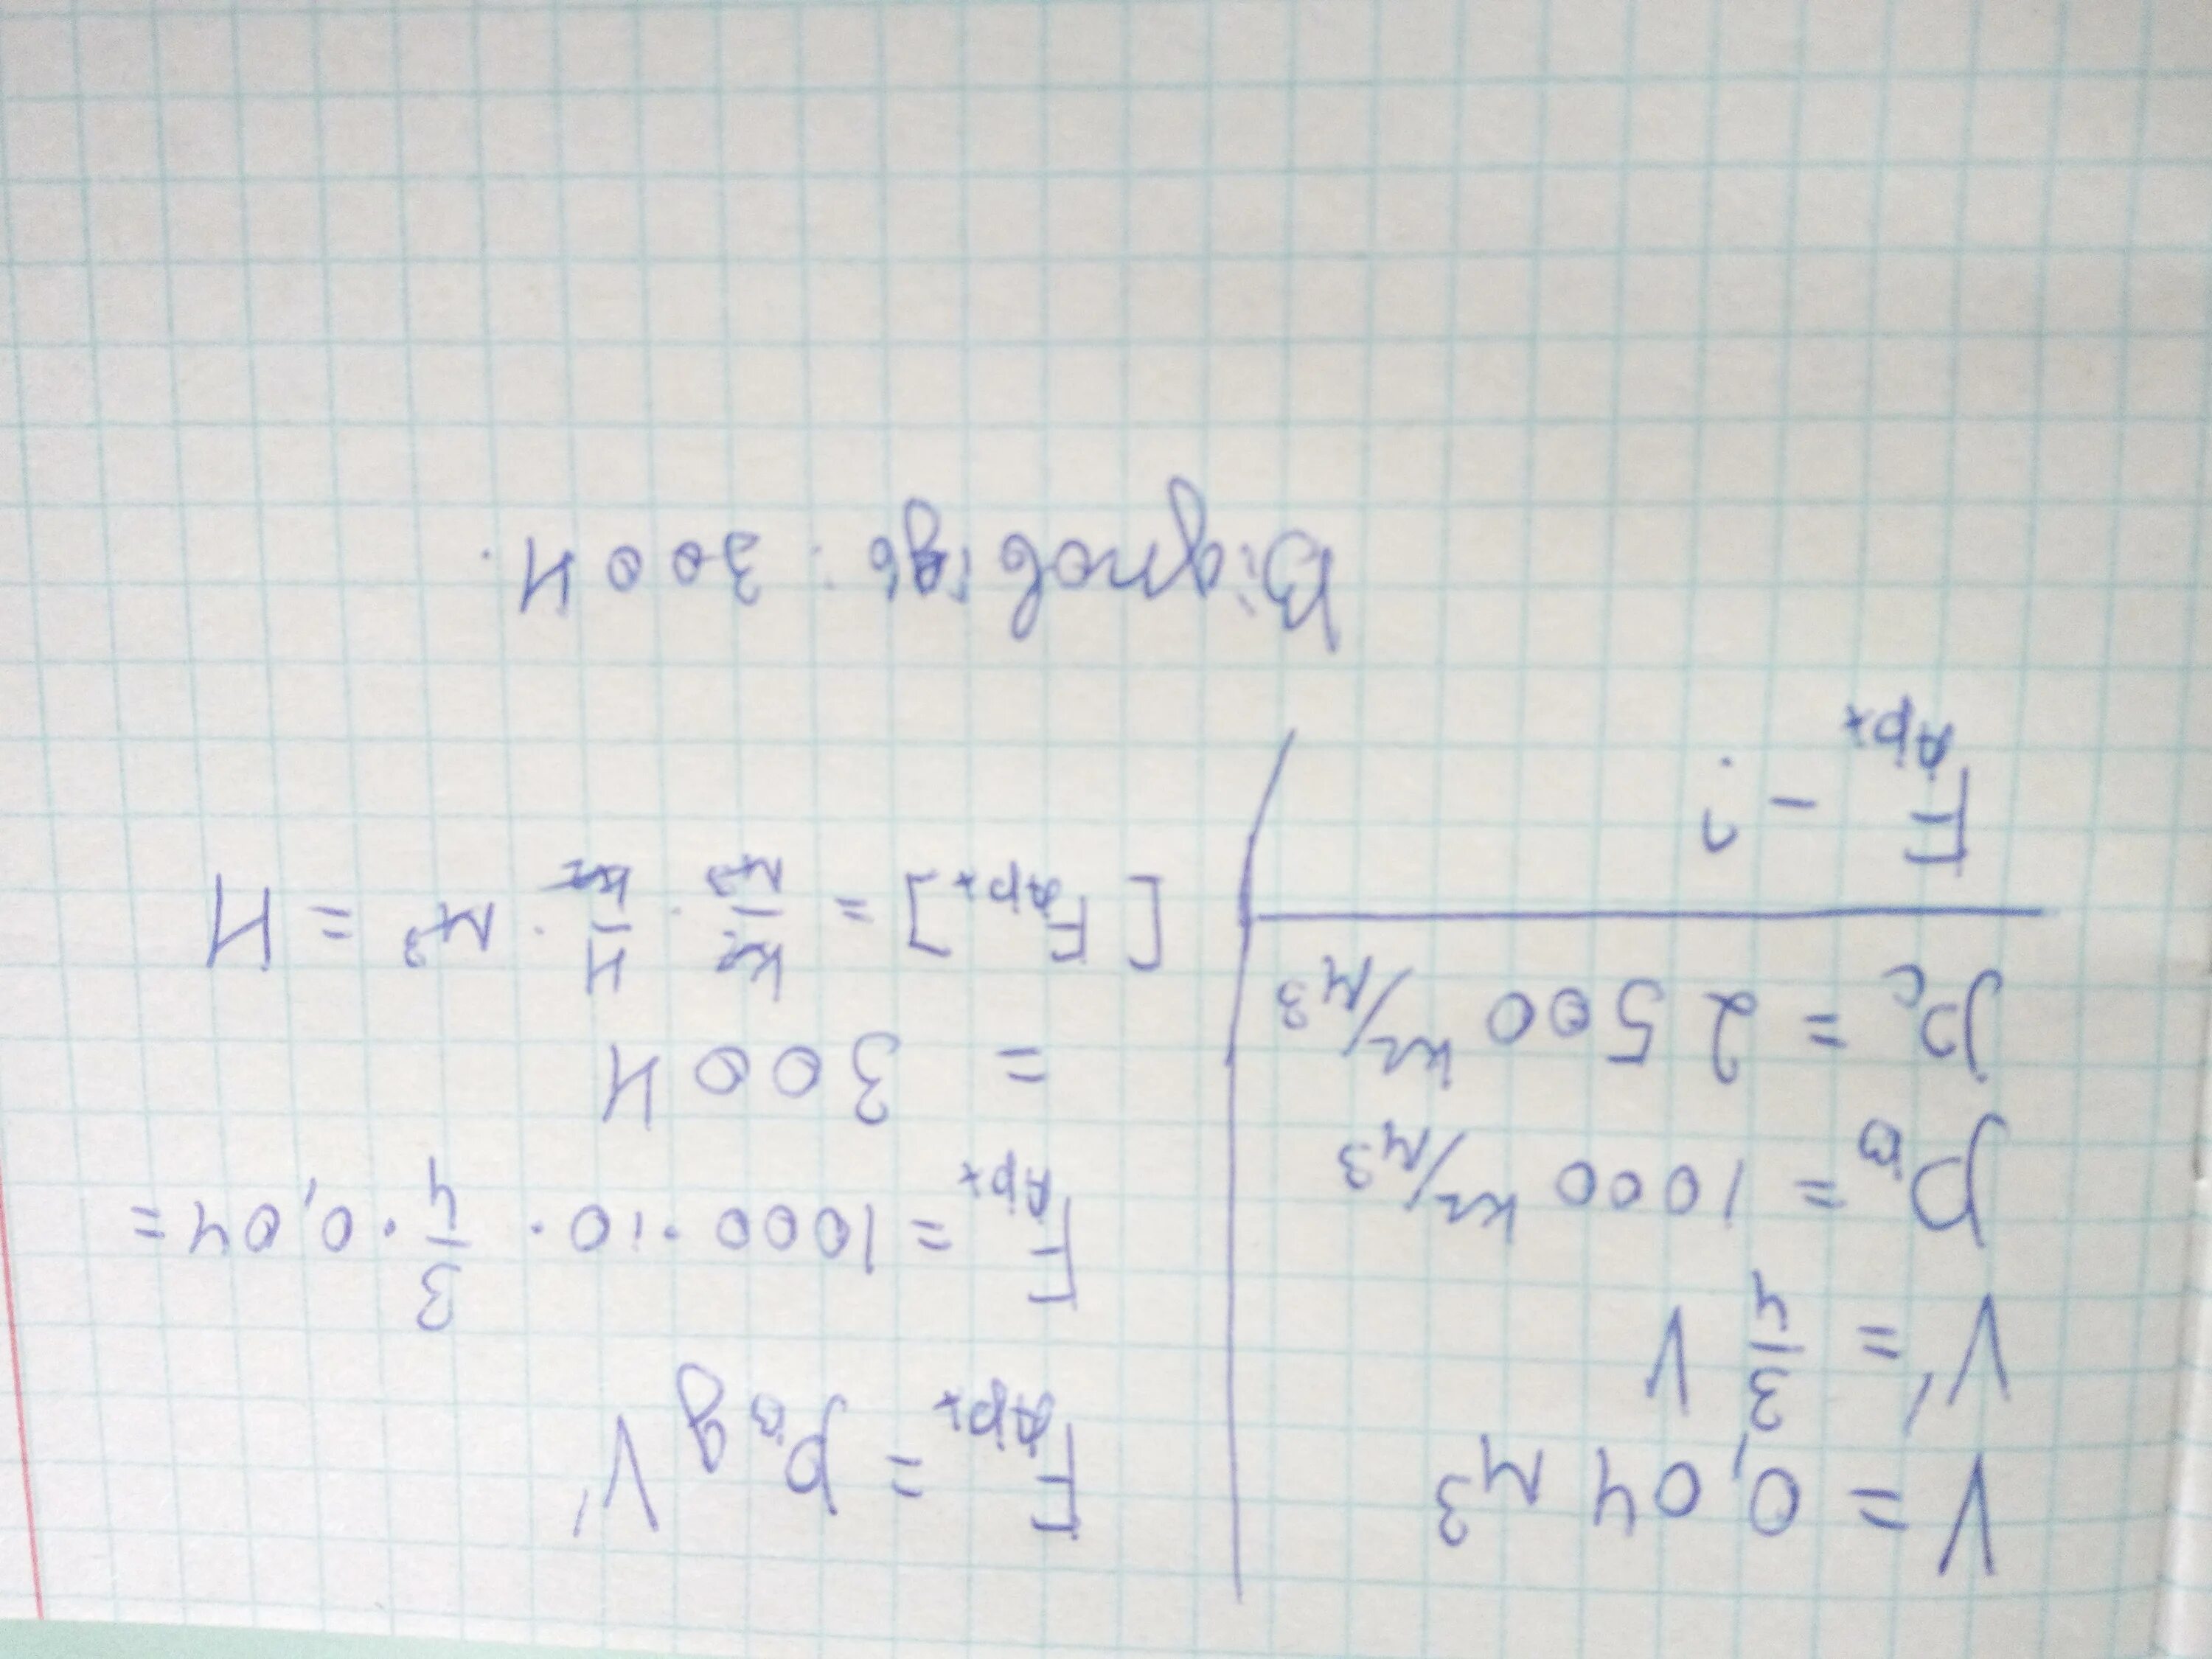 V = 0,04 м³
V' = 3/4 V
ρв = 1000 кг/м³
ρс = 2500 кг/м³
FАрх - ?
FАрх = ρв g V'
FАрх = 1000 · 10 · 3/4 · 0,04 =
= 300 Н
[FАрх] = кг/м³ · Н/кг · м³ = Н
Відповідь: 300 Н.